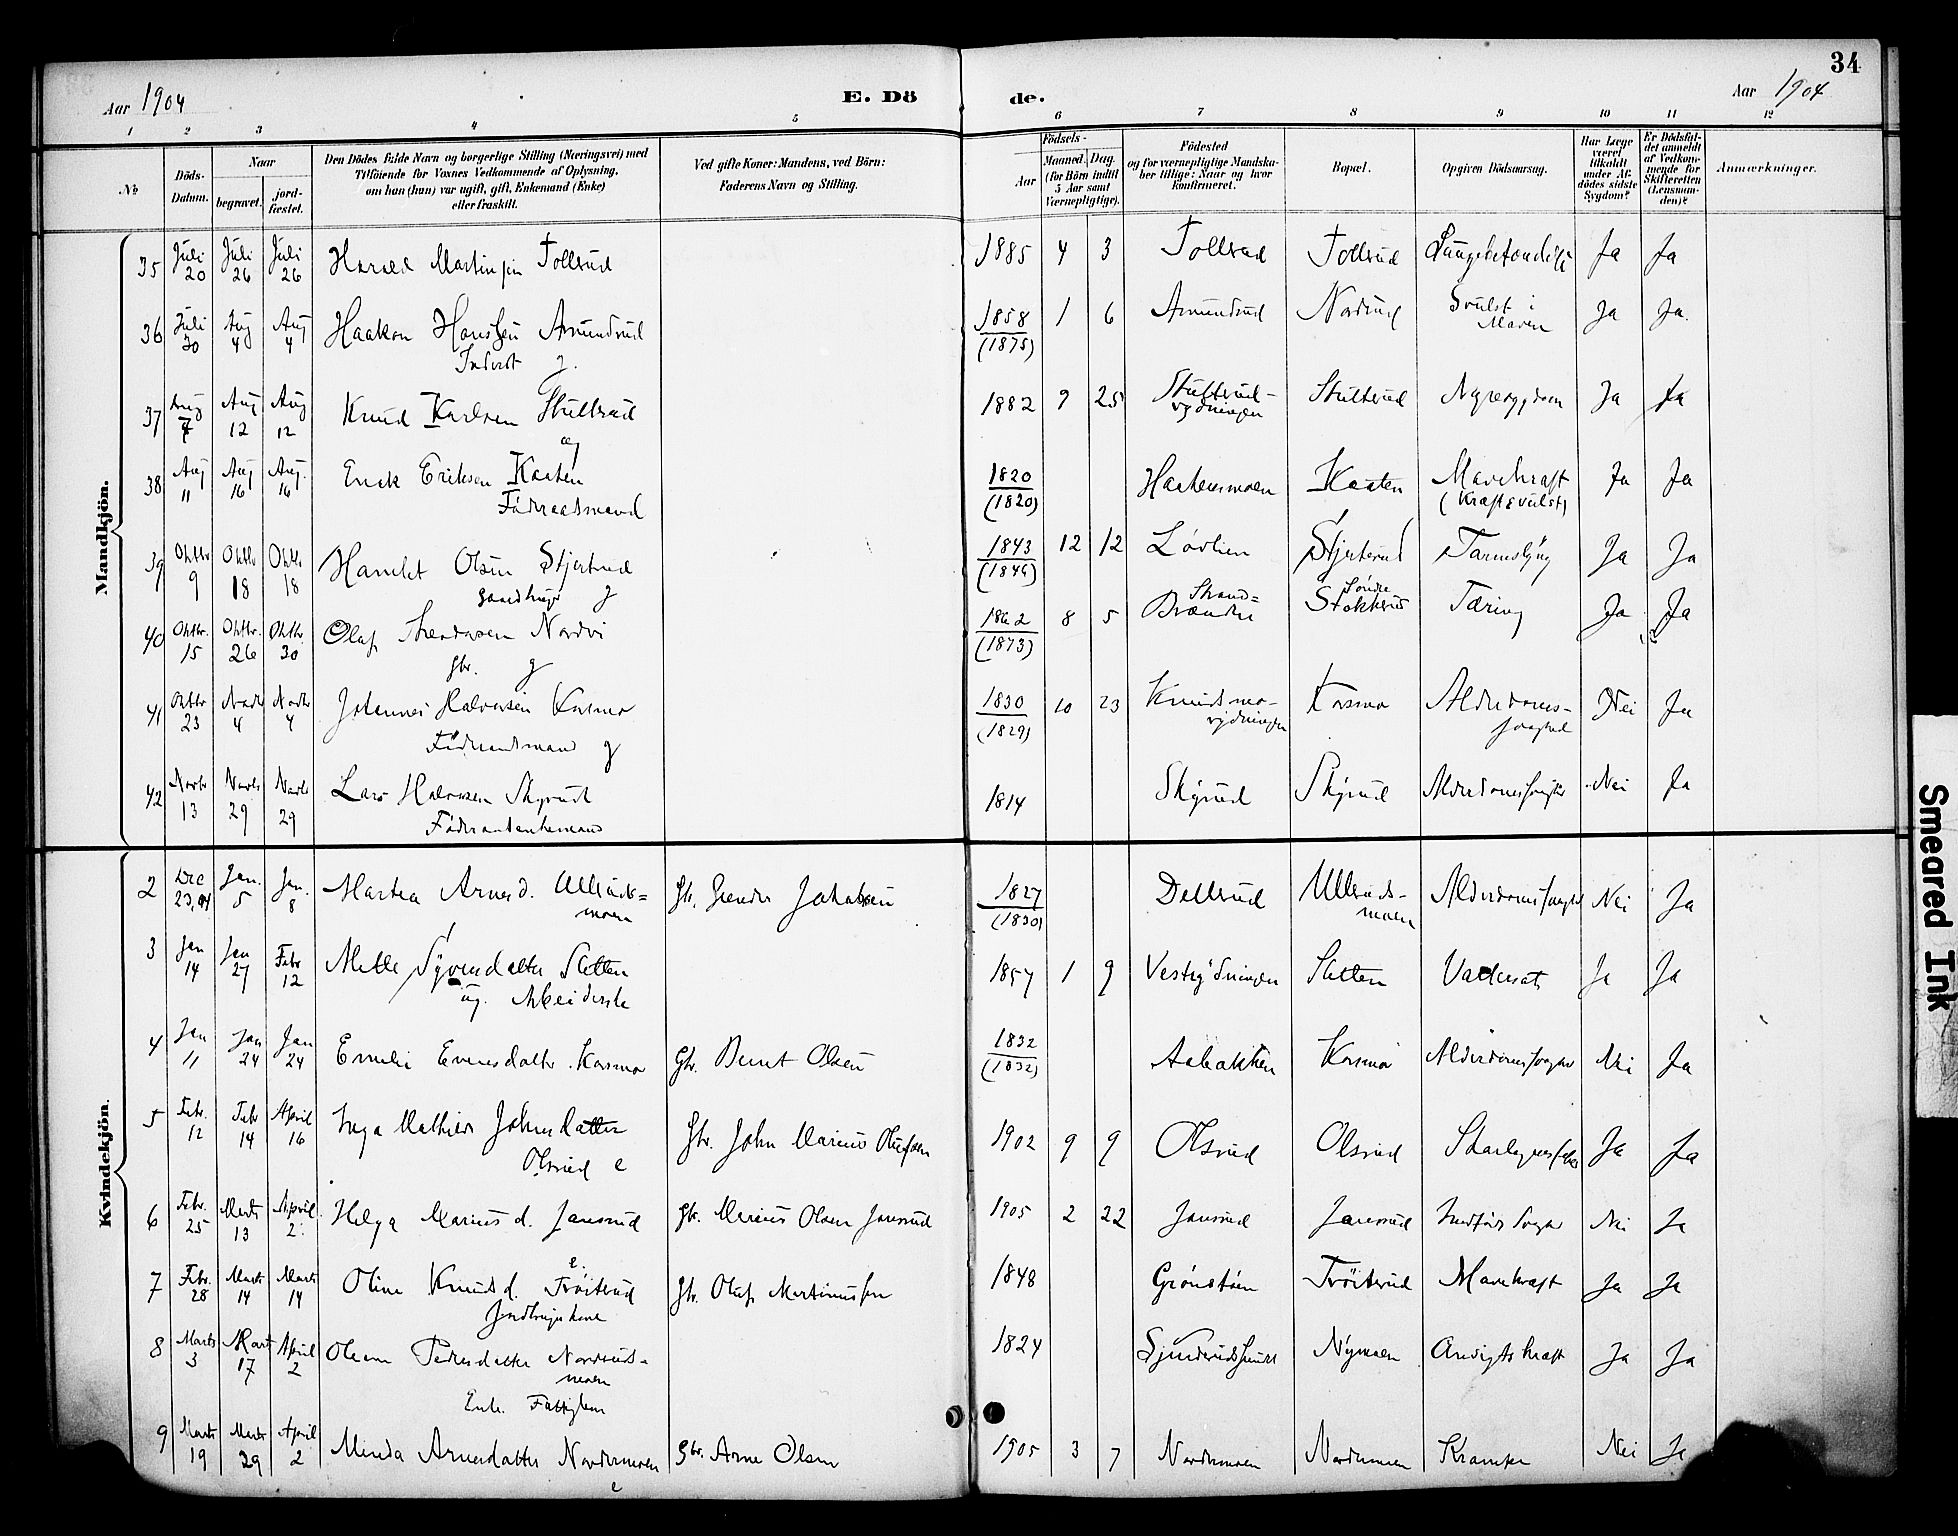 34
Aar 1904 E. Dö de. Aar 1904
1 2 3 4 5 6 7 8 9 10 11 12
No
Döds-Datum.
Naar
begravet. jord-fæstet.
Den Dödes fulde Navn og borgerlige Stilling (Næringsvei) med
Tilföiende for Voxnes Vedkommende af Oplysning,
om han (hun) var ugift, gift, Enkemand (Enke)
eller fraskilt.
Ved gifte Koner: Mandens, ved Börn:
Faderens Navn og Stilling.
Födsels-
Aar Maaned. Dag.
(for Börn indtil
5 Aar samt
Værnepligtige).
Födested
og for værnepligtige Mandska-
ber tillige: Naar og hvor
konfirmeret.
Bopæl.
Opgiven Dödsaarsag.
Har Læge
været
tilkaldt
under Af-
dödes sidste
Sygdom?
Er Dödsfal-
det anmeldt
af Vedkom-
mende for
Skifteretten
(Lensman-
den)?
Anmærkninger.
Mandkjön.
35 Juli 20 Juli 26 Juli 26 Harald Martinsen Tollrud 1885 4 3 Tollrud Tollrud Ja Ja
36 Juli 30 Aug 4 Aug 4 Haakon Hanssen Amundrud 1858 1 6 Amundrud Nordrud Svulst i Ja Ja.
Inderst g. (1875) Maven
37 Aug 7 Aug 12 Aug 12 Knud Karlsen Stultrud 1882 9 25 Stultrud- Stultrud Nyresygdom Ja Ja
ug rydningen
38 Aug 11 Aug 16 Aug. 16 Erik Eriksen Kaaten 1820 Haakensmoen Kaaten Mavekræft Ja Ja
Föderaadsmand (1820) (Kræftsvulst)
39 Oktbr 9 Oktbr 18 Oktbr 18 Olsen Stjertrud 1843 12 12 Lövlien Stjerterud Tarmslyng Ja Ja
g (1844)
40 Oktbr. 15 Oktbr. 26 Oktbr 30 Olaf Nordvi 1862 8 5 Strand= Söndre Stokkerud Tæring Ja Ja
Gbr. g (1873) Brænden
41 Oktbr 23 Novbr 4 Novbr 4 Johannes Halvorsen Korsmo 1830 10 23 Knudsmo- Korsmo Alderdoms- Nei Ja
Föderaadsmand g (1829) rydningen svaghed
42 Novbr 13 Novbr 29 Novbr 29 Lars Halvorsen Skyrud 1814 Skyrud Skyrud Alderdomssvaghed Nei Ja
Föderaadsenkemand
Kvindekjön.
2 Dec 23,04 Jan. 5 Jan. 8 Martea Arnesd. Ullruds= Gbr. Jakobsen 1827 Dellrud Ullruds- Alderdomssvaghed Nei Ja
moen (1830) moen
3 Jan 14 Jan 27 Febr 12 Mette Syversdatter Sletten 1857 1 9 Vestrydningen Sletten Vattersot Ja Ja
ug. Arbeiderske
4 Jan 11 Jan 24 Jan 24 Emelie Evensdatter Korsmo Gbr. Bernt Olsen 1832 Aabakken Korsmo Alderdomssvaghed Nei Ja
(1832)
5 Febr. 12 Febr 14 April 16 Inga Mathea Johnsdatter Gbr. John Marius Olufsen 1902 9 9 Olsrud Olsrud Skarlagensfeber Ja Ja
Olsrud e
6 Febr. 25 Marts 13 April 2. Helga Mariusd. Jansrud Gbr. Marius Olsen Jansrud 1905 2 22 Jansrud Jansrud Medfödt Svaghed Nei Ja
e.
7 Febr. 28 Marts 14 Marts 14 Oline Knudsd. Tröiterud Gbr. Olaf Martinussen 1848 Grönstöen Tröiterud Mavekræft Ja Ja
Jordbrugerkone
8 Marts 3 Marts 17 April 2 Oleane Pedersdatter Nordruds- 1824 Nymoen Ansigtskræft Ja Ja
moen
Enke. Fattiglem
9 Marts 19 Marts 29 April 2 Minda Arnesdatter Nordermoen Gbr. Arne Olsen 1905 3 7 Nordermoen Nordermoen Krampe Nei Ja
e
Smeared Ink